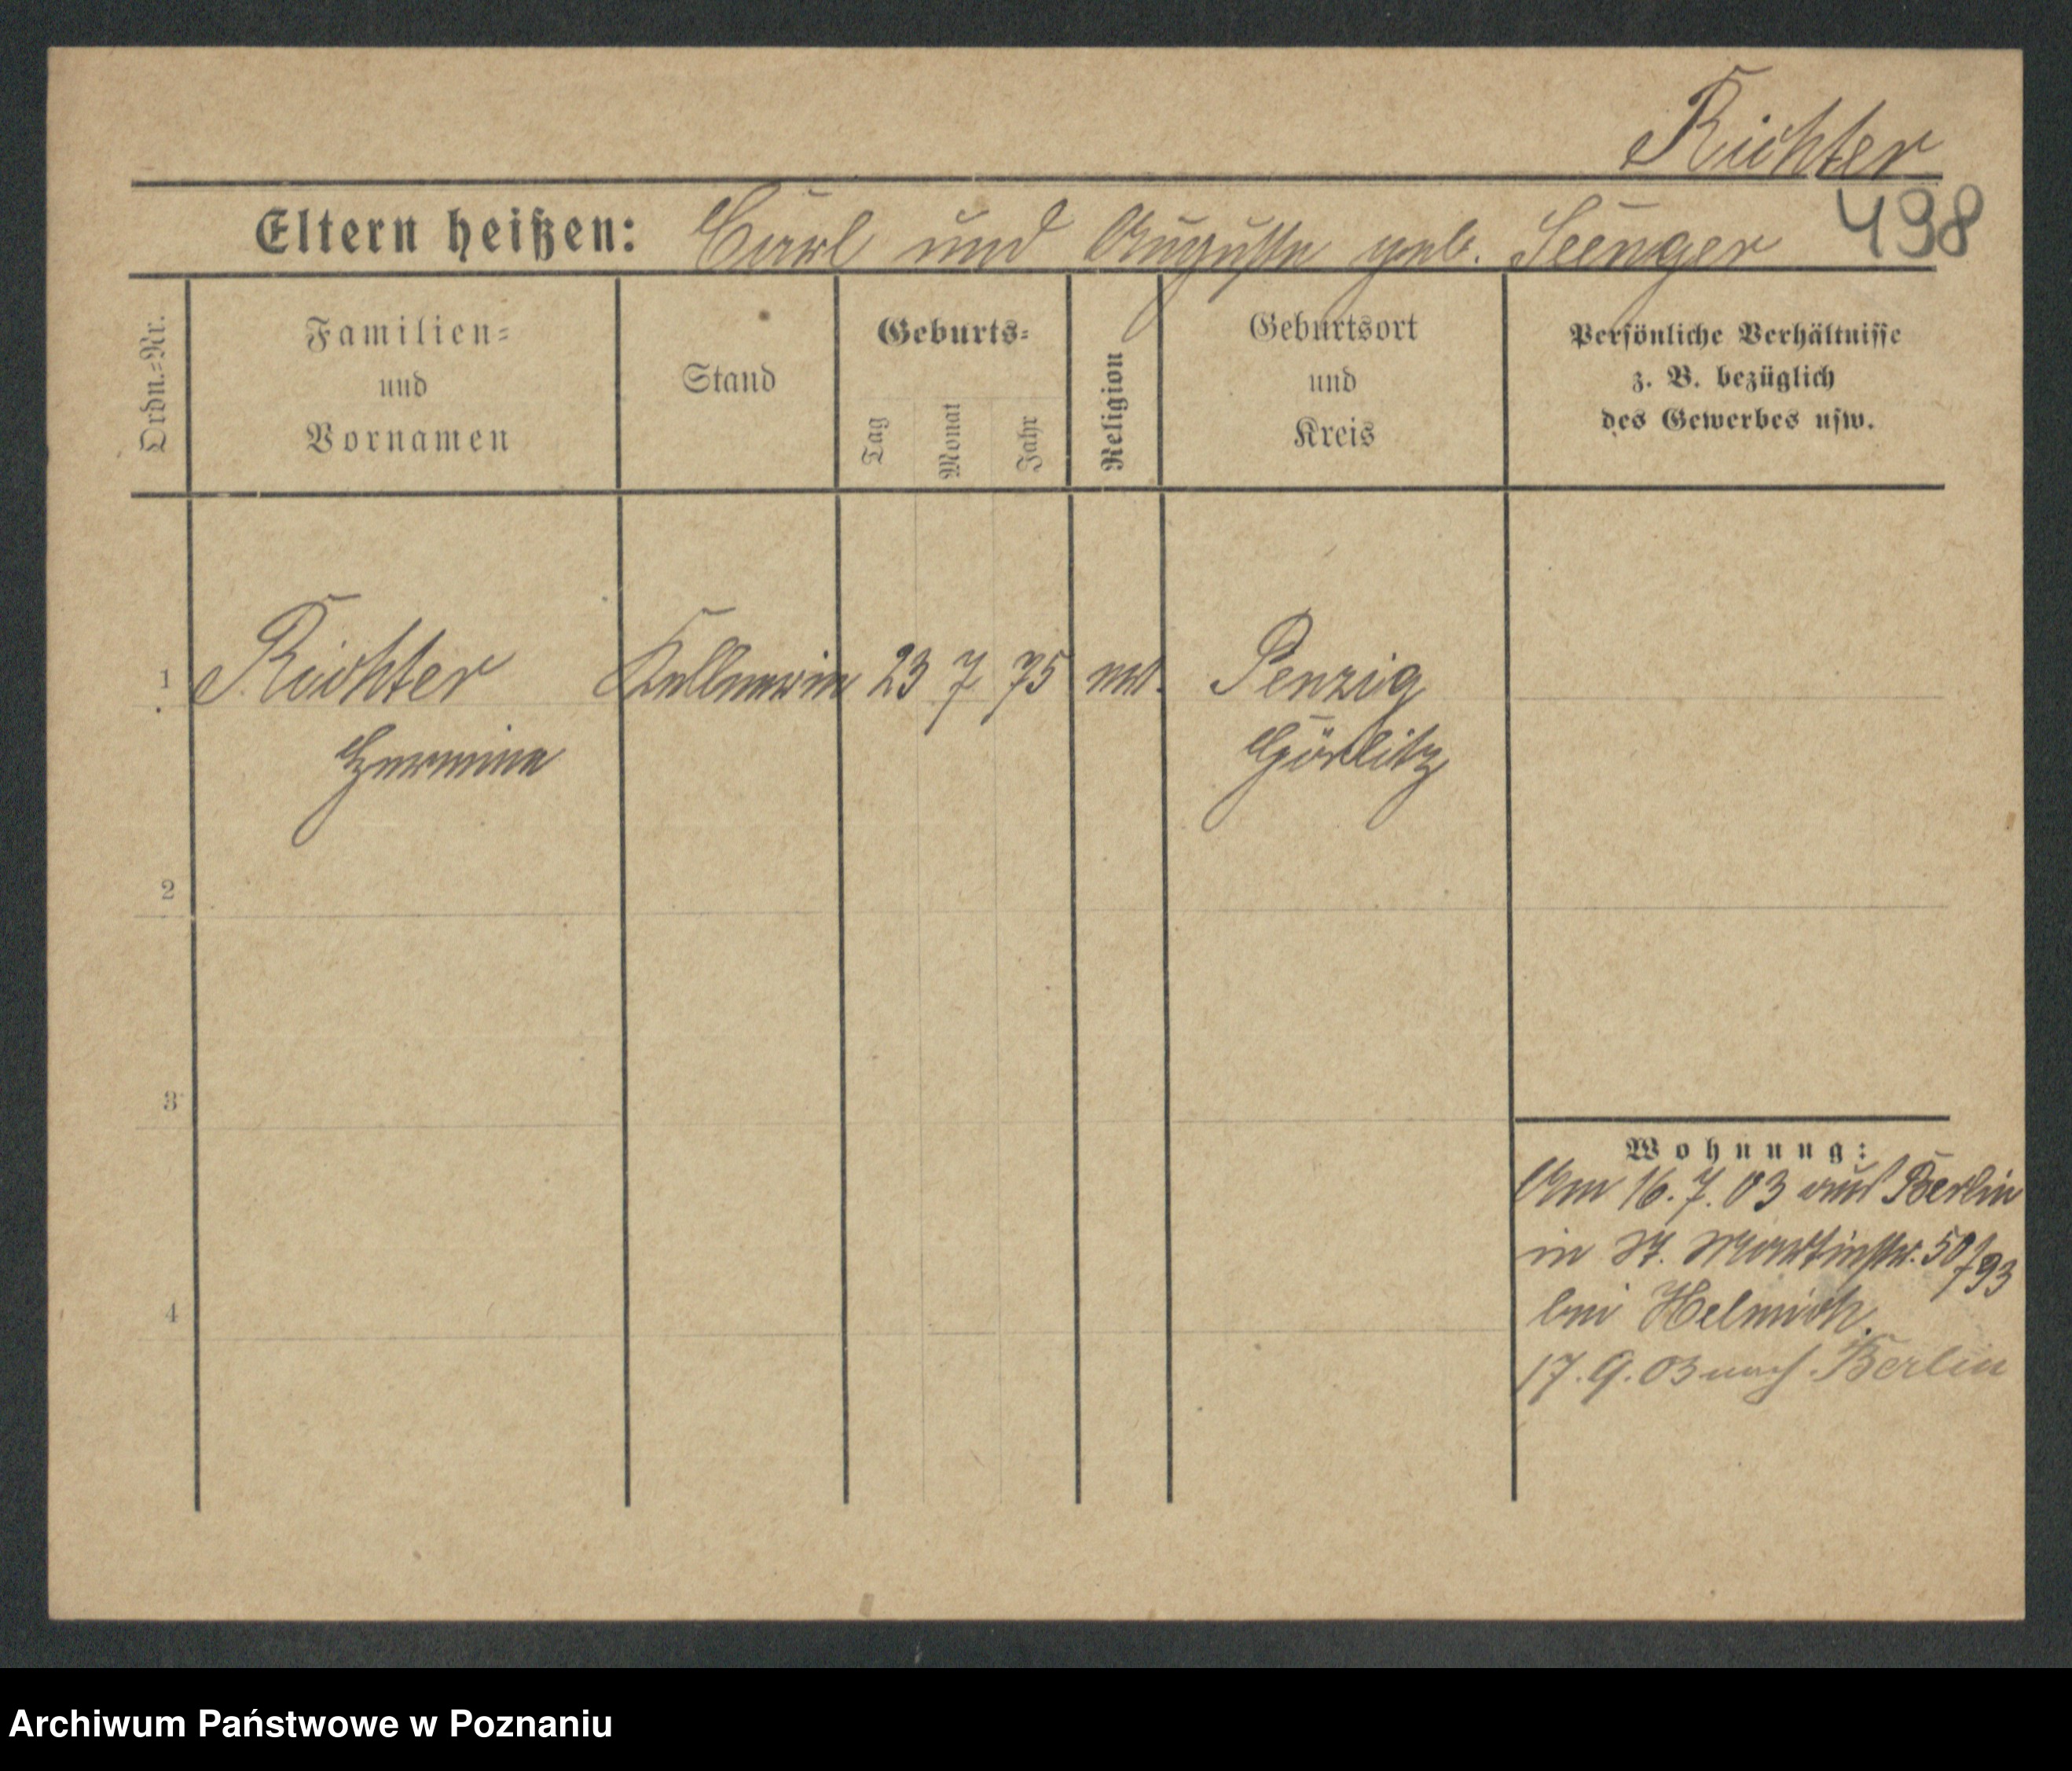 Richter
498
Eltern heißen: Carl und Auguste geb. Seenger
Ordn.-Nr.
Familien-
und
Vornamen
Stand
Geburts-
Tag
Monat
Jahr
Religion
Geburtsort
und
Kreis
Persönliche Verhältnisse
z. B. bezüglich
des Gewerbes usw.
1 Richter Kellnerin 23 7 75 Penzig
Hermine Görlitz
2
3
4
Wohnung:
Am 16.7.03 aus Berlin
in St. Martinstr. 50/93
bei Helmich.
17.9.03 nach Berlin
Archiwum Państwowe w Poznaniu